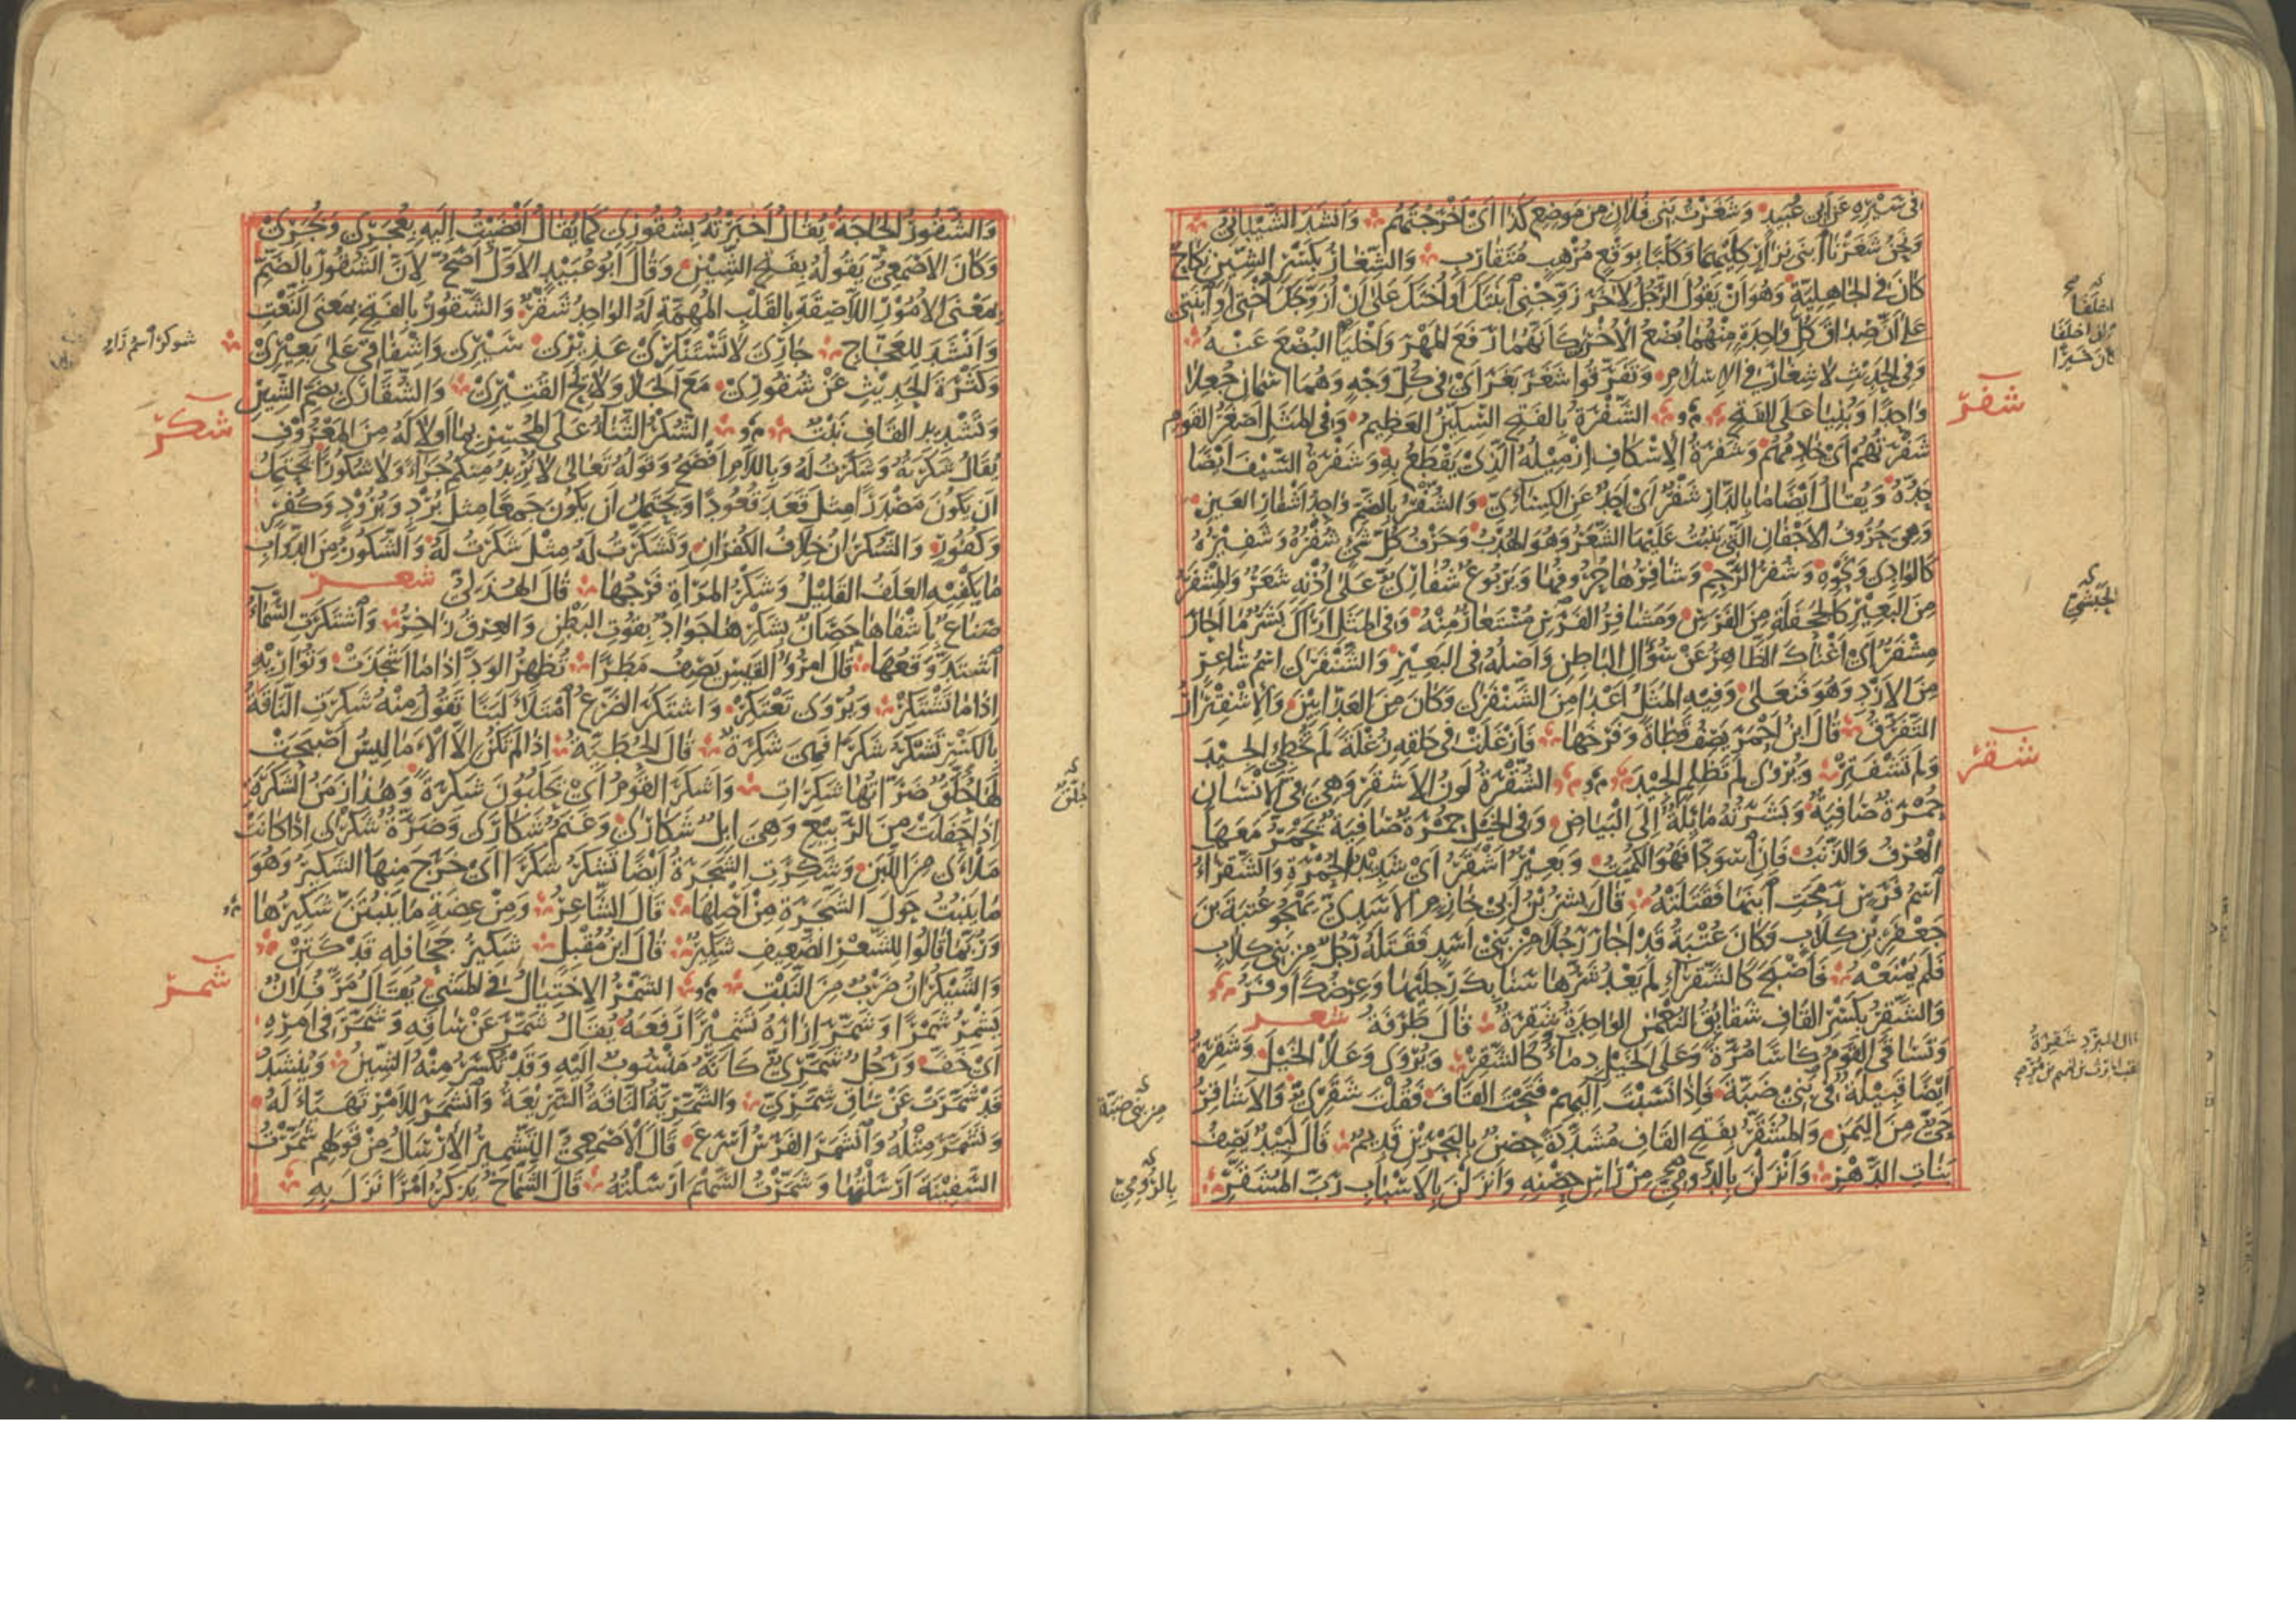 في سيره عن أبي عبيد وشغرت بني فلان من موضع كذا أي أخرجتهم وأنشد الشيباني
ونحن شغرنا ابني نزار كليهما وكلبا بوقع مرهب متقارب والشغار بكسر الشين نكاح
كان في الجاهلية وهو أن يقول الرجل لآخر زوجني ابنتك أو أختك على أن أزوجك أختي أو ابنتي
على أن صداق كل واحدة منهما بضع الأخرى كأنهما رفعا المهر وأخليا البضع عنه
وفي الحديث لا شغار في الإسلام وتفرقوا شغر بغر أي في كل وجه وهما اسمان جعلا
واحدا وبنيا على الفتح الشفرة بالفتح السكين العظيم وفي المثل أصغر القوم
شفرتهم أي خادمهم وشفرة الإسكاف إزميله الذي يقطع به وشفرة السيف أيضا
حده ويقال أيضا ما بالدار شفر أي أحد عن الكسائي والشفر بالضم واحد أشفار العين
وهي حروف الأجفان التي ينبت عليها الشعر وهو الهدب وحرف كل شيء شفره وشفيره
كالوادي ونحوه وشفر الرحم وشافرها حروفها ويربوع شفاري على أذنه شعر والمشفر
من البعير كالجحفلة من الفرس ومشافر الفرس مستعار منه وفي المثل أراك بشر ما أحار
مشفر أي أغناك الظاهر عن سؤال الباطن وأصله في البعير والشنفرى اسم شاعر
من الأزد وهو فنعلى وفيه المثل أعدا من الشنفرى وكان من العدائين والاشفترار
التفرق قال ابن أحمر يصف قطاة وفرخها فأزغلت في حلقه زغلة لم تخطئ الجيد
ولم تشفتر ويروى لم تظلم الجيد الشقرة لون الأشقر وهي في الإنسان
حمرة صافية وبشرته مائلة إلى البياض وفي الخيل حمرة صافية يحمر معها
العرف والذنب فإن اسودا فهو الكميت وبعير أشقر أي شديد الحمرة والشقراء
اسم فرس رمحت ابنها فقتلته قال بشر بن أبي خازم الأسدي يهجو عتبة بن
جعفر بن كلاب وكان عتبة قد أجار رجلا من بني أسد فقتله رجل من بني كلاب
فلم يمنعه فأصبح كالشقراء لم يعد شرها سنابك رجليها وعرضك أوفر
والشقر بكسر القاف شقايق النعمن الواحدة شقرة قال طرفة شعر
وتساقى القوم كأسا مرة وعلى الخيل دماء كالشقر ويروى وعلا الخيل وشقرة
أيضا قبيلة في بني ضبة فإذا نسبت إليهم فتحت القاف فقلت شقري والأشاقر
حي من اليمن والمشقر بفتح القاف مشددة حصن بالبحرين قديم قال لبيد يصف
بنات الدهر وأنزلن بالدومي من رأس حصنه وأنزلن بالأسباب رب المشقر
شفر
شقر
الحبشي
قال المبرد شقرة
من بني ضبة
بالرومي
والشقور الحاجة يقال أخبرته بشقوري كما يقال أفضيت إليه بعجري وبجري
وكان الأصمعي يقوله بفتح الشين وقال أبو عبيد الأول أصح لأن الشقور بالضم
بمعنى الأمور اللاصقة بالقلب المهمة له الواحد شقر والشقور بالفتح بمعنى النعت
وأنشد للعجاج جاري لا تستنكري عذيري سيري وإشفاقي على بعيري
وكثرة الحديث عن شقوري مع الجلا ولائح القتيري والشقارى بضم الشين
وتشديد القاف نبت الشكر الثناء على المحسن بما أولاكه من المعروف
يقال شكرته وشكرت له وباللام أفصح وقوله تعالى لا نريد منكم جزاء ولا شكورا يحتمل
أن يكون مصدرا مثل قعد قعودا ويحتمل أن يكون جمعا مثل برد وبرود وكفر
وكفور والشكران خلاف الكفران وتشكرت له مثل شكرت له والشكور من الدواب
ما يكفيه العلف القليل وشكر المرأة فرجها قال الهذلي شعر
صناع بإشفاها حصان بشكرها جواد بقوت البطن والعرق زاخر واشتكرت السماء
اشتد وقعها قال امرؤ القيس يصف مطرا تظهر الود إذا ما أشجذت وتواريه
إذا ما تشتكر ويروى تعتكر واشتكر الضرع امتلأ لبنا تقول منه شكرت الناقة
بالكسر تشكر شكرا فهي شكرة قال الحطيئة إذا لم تكن إلا الأماليس أصبحت
لها حلق ضراتها شكرات وأشكر القوم أي يحلبون شكرة وهذا زمن الشكرة
إذا حفلت من الربيع وهي إبل شكارى وغنم شكارى وضرة شكرى إذا كانت
ملأى من اللبن وشكرت الشجرة أيضا تشكر شكرا أي خرج منها الشكير وهو
ما ينبت حول الشجرة من أصلها قال الشاعر ومن عضة ما ينبتن شكيرها
وربما قالوا للشعر الضعيف شكير قال ابن مقبل شكير جحافله قد كتن
والشيكران ضرب من النبت الشمر الاختيال في المشي يقال مر فلان
يشمر شمرا وشمر إزاره تشميرا رفعه يقال شمر عن ساقه وشمر في أمره
أي خف ورجل شمري كأنه منسوب إليه وقد تكسر منه الشين وينشد
قد شمرت عن ساق شمري والشمرية الناقة السريعة وانشمر للأمر تهيأ له
وتشمر مثله وانشمر الفرس أسرع قال الأصمعي التشمير الإرسال من قولهم شمرت
السفينة أرسلتها وشمرت السهم أرسلته قال الشماخ يذكر أمرا نزل به
شكر
شمر